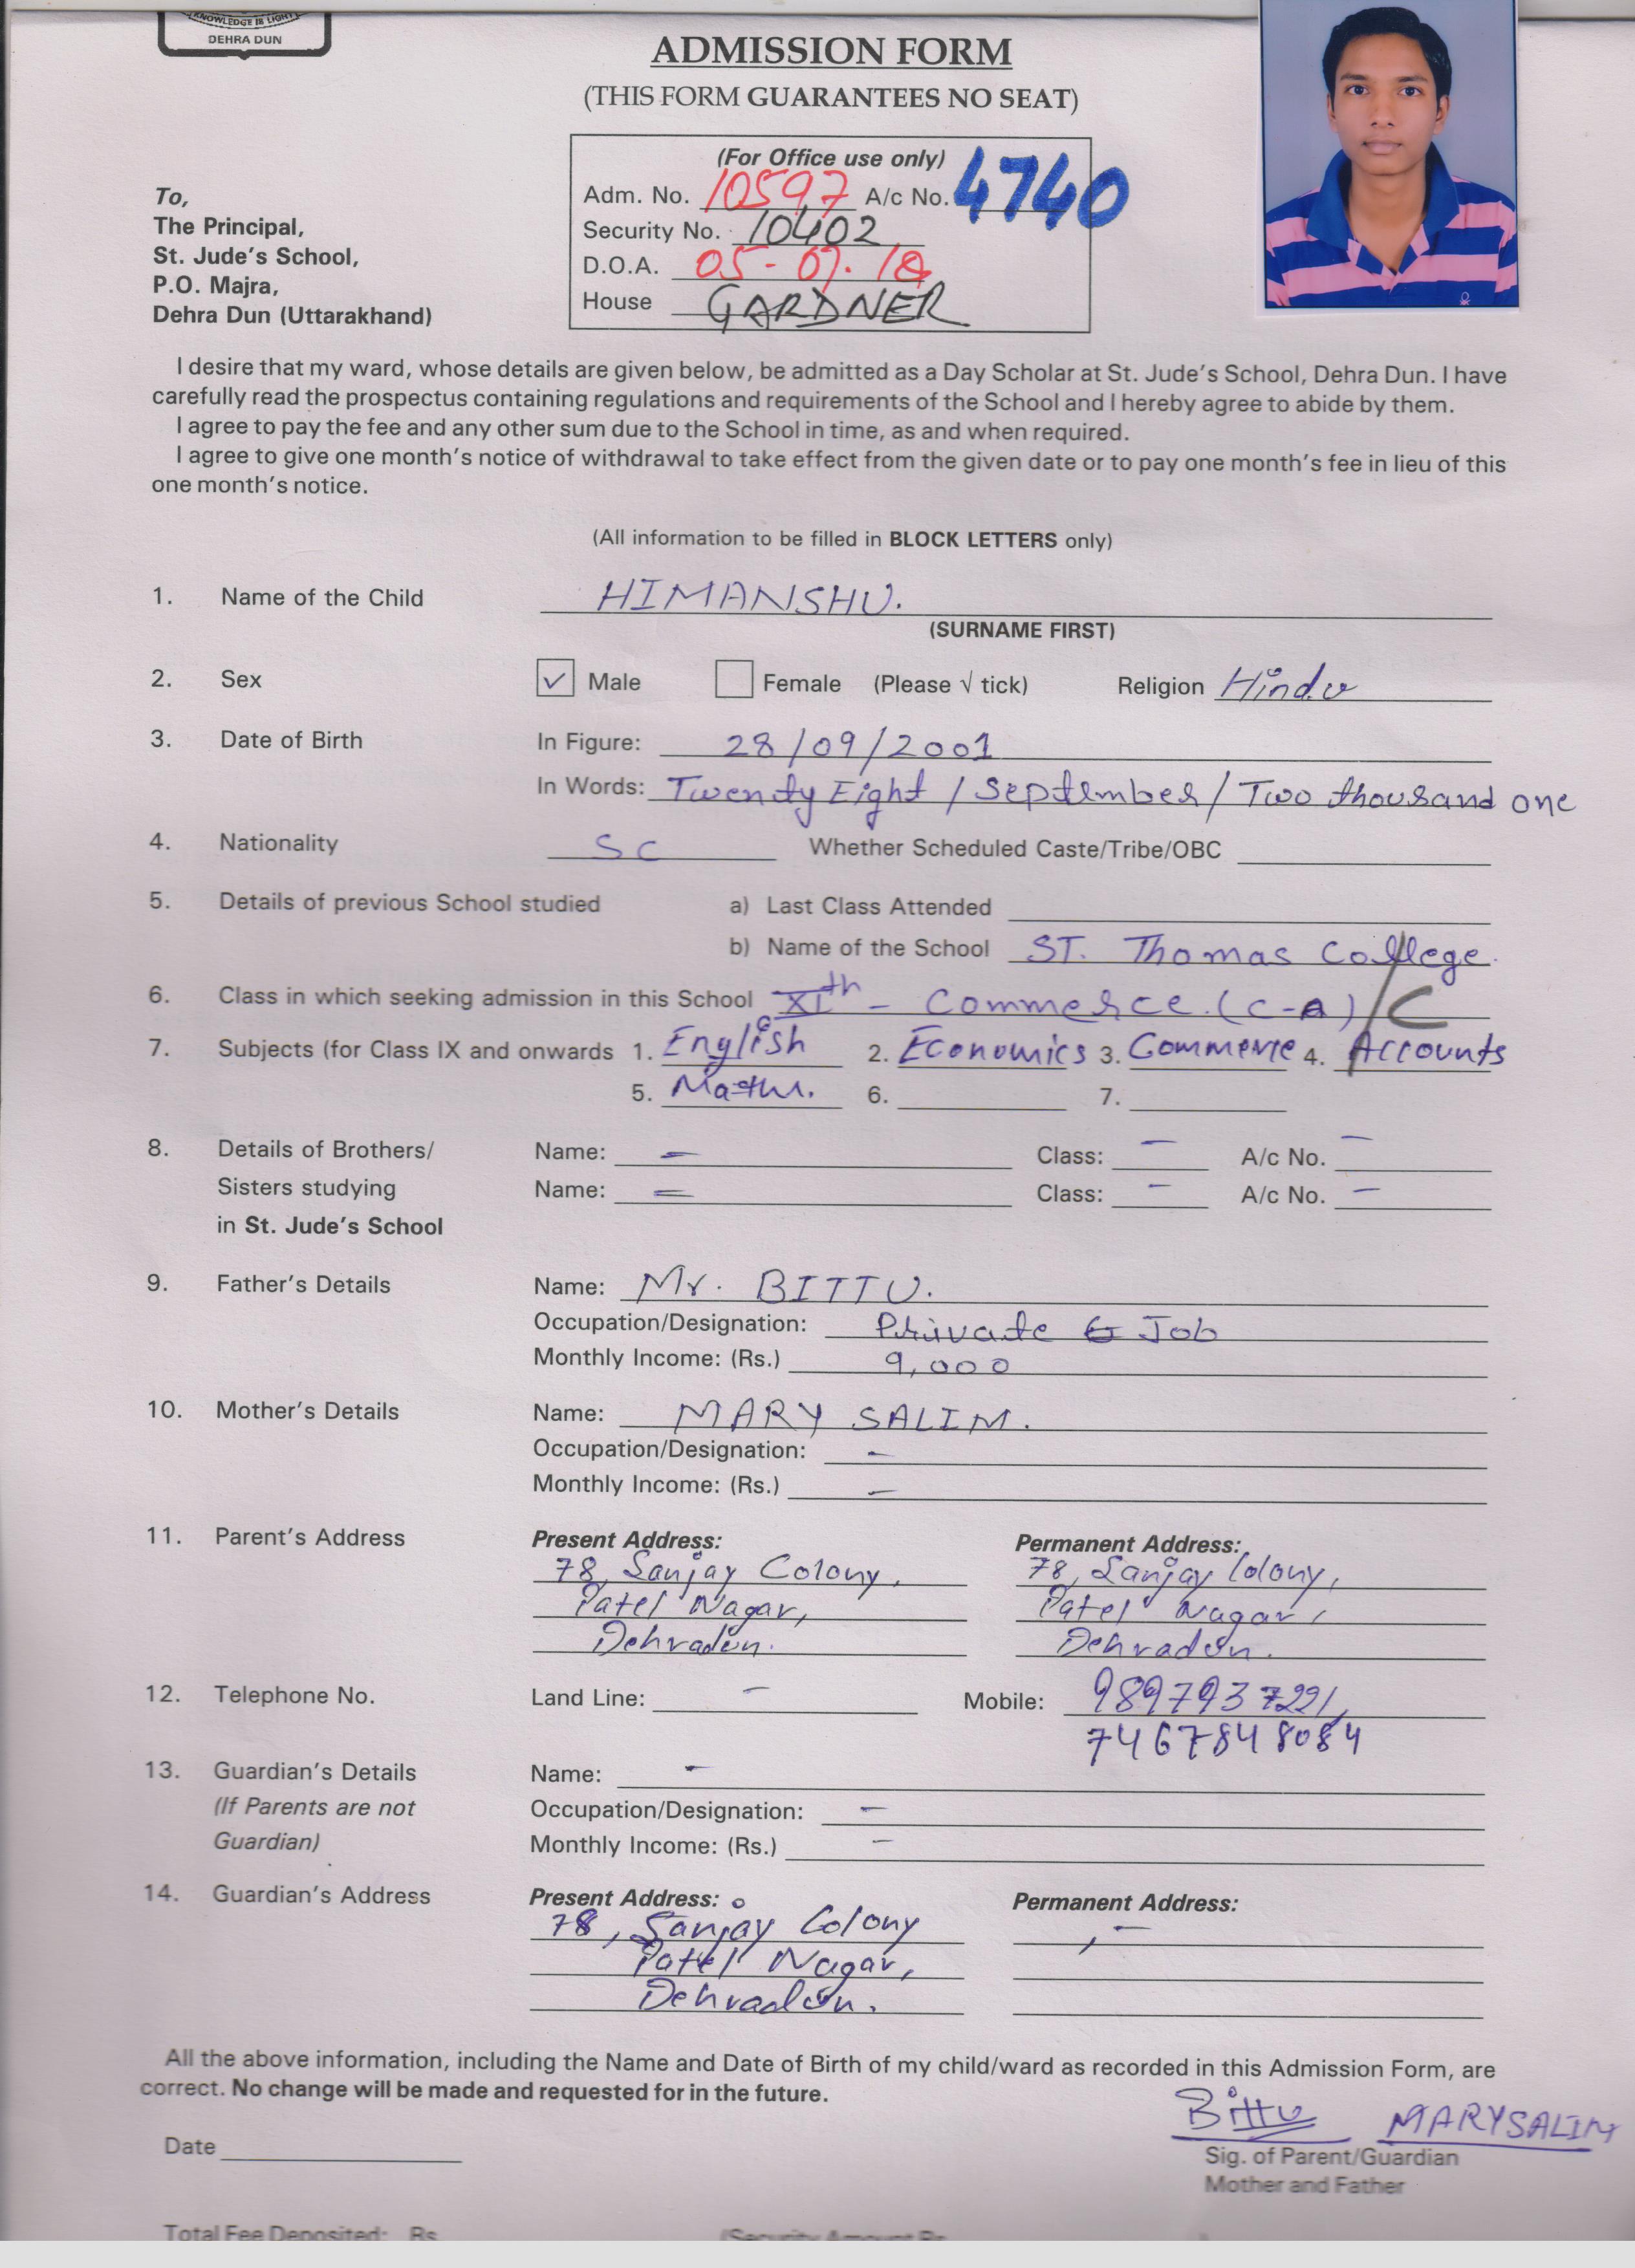 KNOWLEDGE IS LIGHT
DEHRA DUN
ADMISSION FORM
(THIS FORM GUARANTEES NO SEAT)
(For Office use only)
Adm. No. 10597 A/c No. 4740
Security No. 10402
D.O.A. 05-07-18
House GARDNER
To,
The Principal,
St. Jude's School,
P.O. Majra,
Dehra Dun (Uttarakhand)
I desire that my ward, whose details are given below, be admitted as a Day Scholar at St. Jude's School, Dehra Dun. I have
carefully read the prospectus containing regulations and requirements of the School and I hereby agree to abide by them.
I agree to pay the fee and any other sum due to the School in time, as and when required.
I agree to give one month's notice of withdrawal to take effect from the given date or to pay one month's fee in lieu of this
one month's notice.
(All information to be filled in BLOCK LETTERS only)
1. Name of the Child HIMANSHU.
(SURNAME FIRST)
2. Sex ✓ Male Female (Please √ tick) Religion Hindu
3. Date of Birth In Figure: 28/09/2001
In Words: Twenty Eight / September / Two thousand one
4. Nationality SC Whether Scheduled Caste/Tribe/OBC
5. Details of previous School studied a) Last Class Attended
b) Name of the School ST. Thomas College.
6. Class in which seeking admission in this School XIth - Commerce. (C-A) / C
7. Subjects (for Class IX and onwards 1. English 2. Economics 3. Commerce 4. Accounts
5. Maths. 6. 7.
8. Details of Brothers/ Name: - Class: - A/c No. -
Sisters studying Name: - Class: - A/c No. -
in St. Jude's School
9. Father's Details Name: Mr. BITTU.
Occupation/Designation: Private Job
Monthly Income: (Rs.) 9,000
10. Mother's Details Name: MARY SALIM.
Occupation/Designation: -
Monthly Income: (Rs.) -
11. Parent's Address Present Address: Permanent Address:
78, Sanjay Colony, 78, Sanjay Colony,
Patel Nagar, Patel Nagar,
Dehradun. Dehradun.
12. Telephone No. Land Line: - Mobile: 9897937221,
7467848084
13. Guardian's Details Name: -
(If Parents are not Occupation/Designation: -
Guardian) Monthly Income: (Rs.) -
14. Guardian's Address Present Address: Permanent Address:
78, Sanjay Colony -
Patel Nagar,
Dehradun.
All the above information, including the Name and Date of Birth of my child/ward as recorded in this Admission Form, are
correct. No change will be made and requested for in the future.
Bittu MARYSALIM
Date Sig. of Parent/Guardian
Mother and Father
Total Fee Deposited: Rs. (Security Amount Rs.